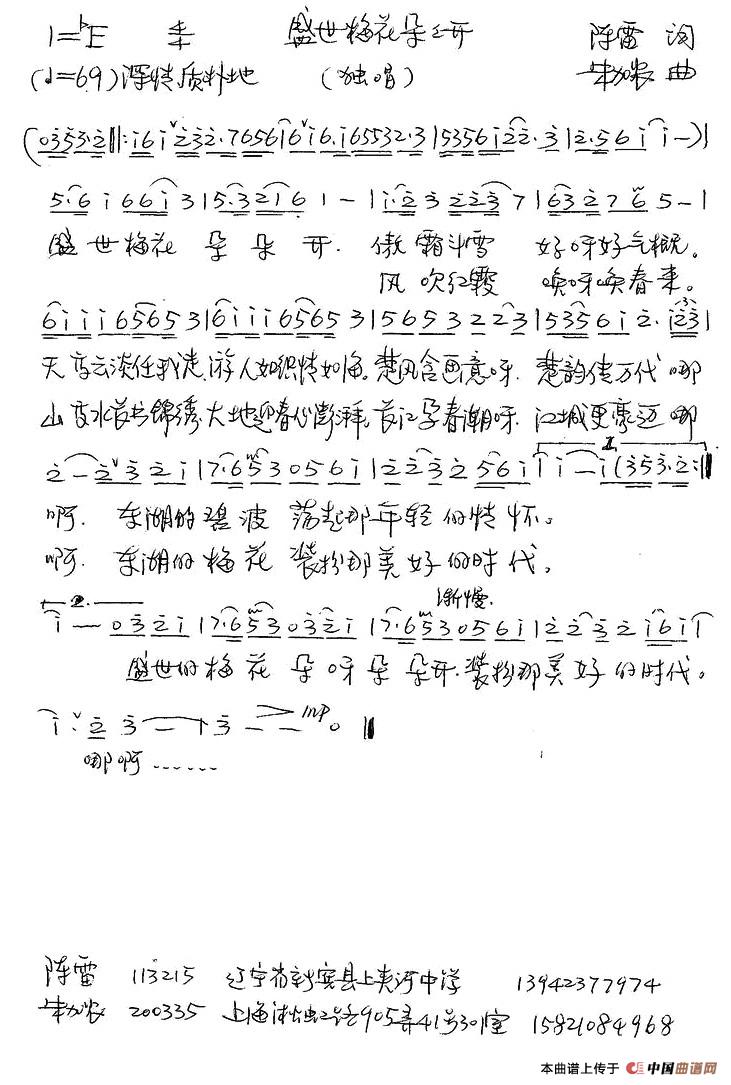 1=ᵇE 盛世梅花朵朵开 陈雷 词
(♩=69) 深情质朴地 (独唱) 朱加农 曲
(0353·2‖:i6i 232·7656|6i6·i65532·3|53556i22·3|2·56i i—)|
5·6 i 66i 3|5·32i6 1 —|i·23 223 7|632 7 6 5 —|
盛世梅花 朵 朵 开. 傲霜斗雪 好呀好气概。
风吹红霞 唤呀唤春来。
6iii65653|6iii65653|56533223|53556i2·i23|
天高云淡任我走,游人如织情如海。楚风含画意呀.楚韵传万代 哪
山高水长书锦绣,大地迎春心澎湃,长江孕春潮呀.江城更豪迈 哪
2—232i|7·653056i|2232 56i|i i—i(353·2:‖
啊. 东湖的碧波 荡起那年轻的情怀。
啊. 东湖的梅花 装扮那美好的时代。
渐慢.
i—— 032i|7·653032i|7·653056i|2232i6i|
盛世的梅花 朵呀朵朵开.装扮那美好的时代。
i·2 3 —|3 — — 0‖ mp
哪啊……
陈雷 113215 辽宁省新宾县上夹河中学 13942377974
朱加农 200335 上海 905弄41号301室 15821084968
本曲谱上传于 中国曲谱网